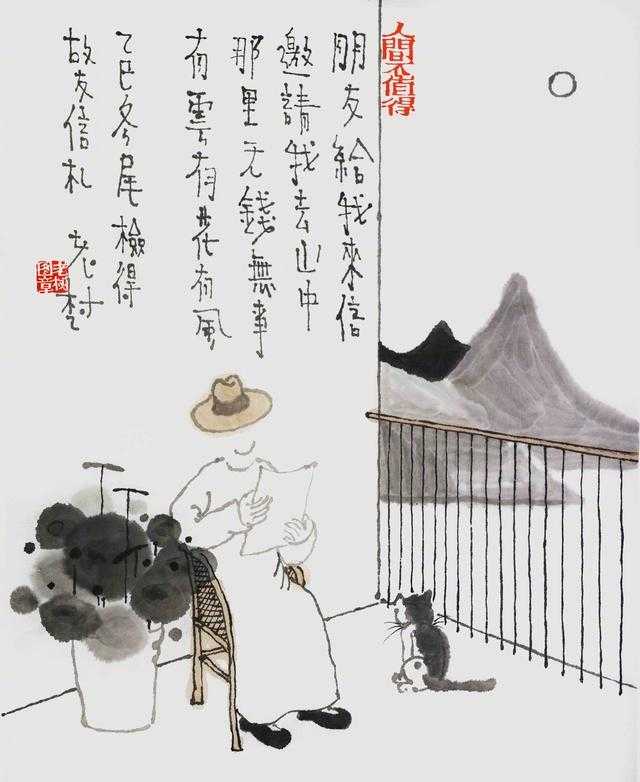 人間不值得
朋友給我來信
邀請我去山中
那里无錢無事
有雲有花有風
乙巳冬尾檢得
故友信札 老树